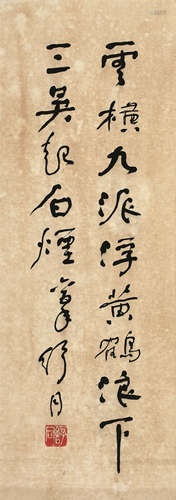 雲橫九派浮黃鶴浪下
三吳起白煙